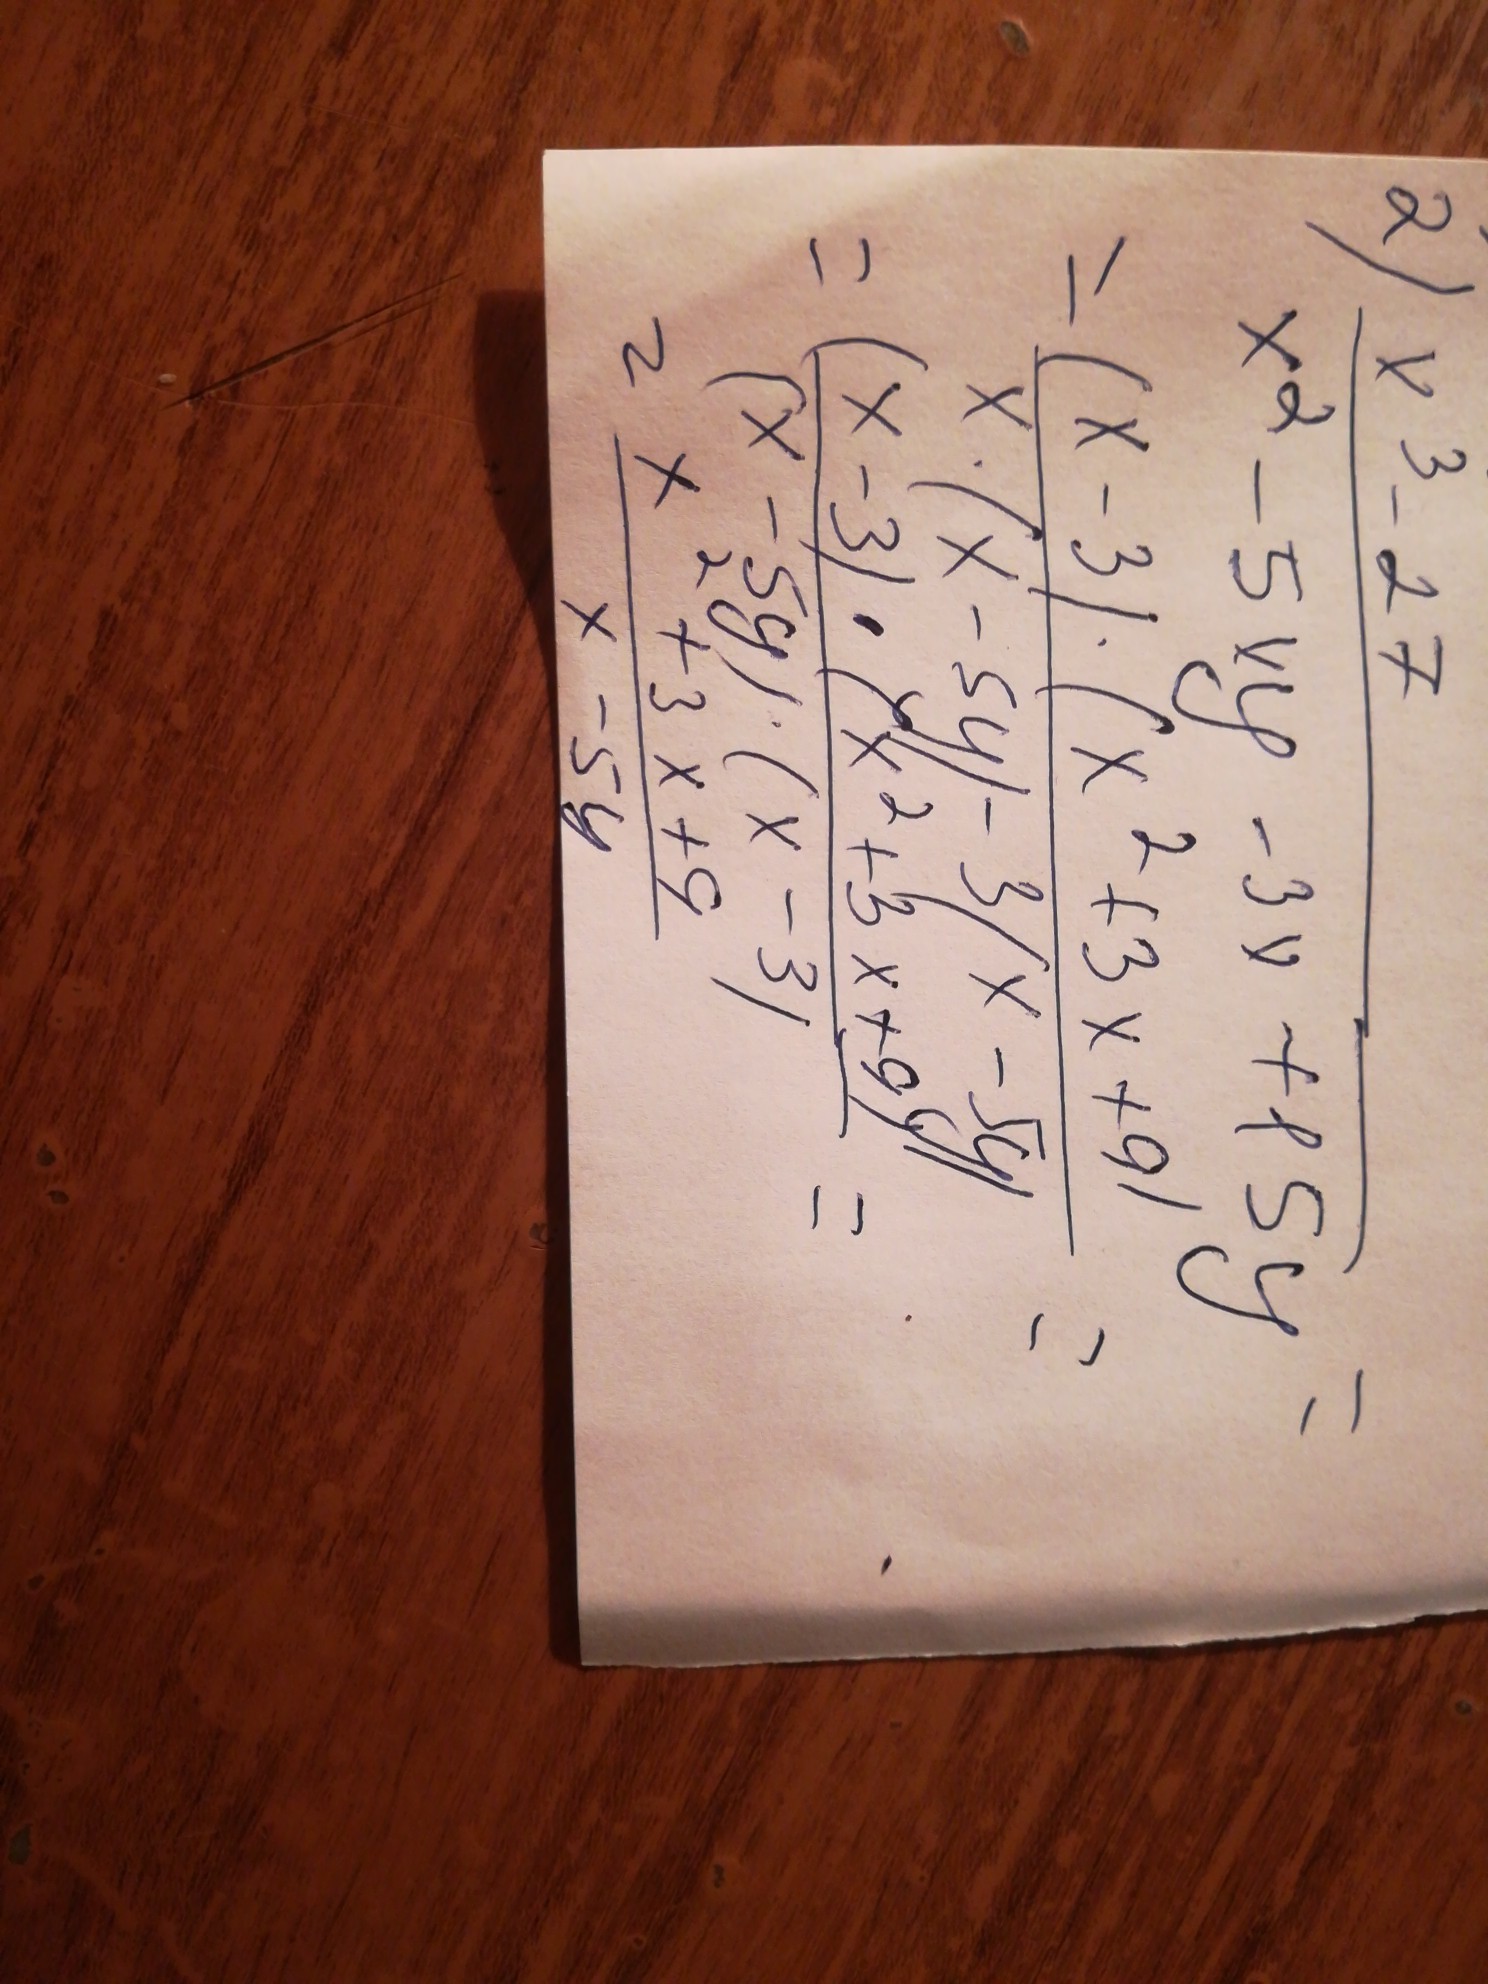 2) x³ - 27
x² - 5xy - 3x + 15y =
= (x - 3) · (x² + 3x + 9)
x · (x - 5y) - 3(x - 5y) =
= (x - 3) · (x² + 3x + 9)
(x - 5y) · (x - 3) =
= x² + 3x + 9
x - 5y